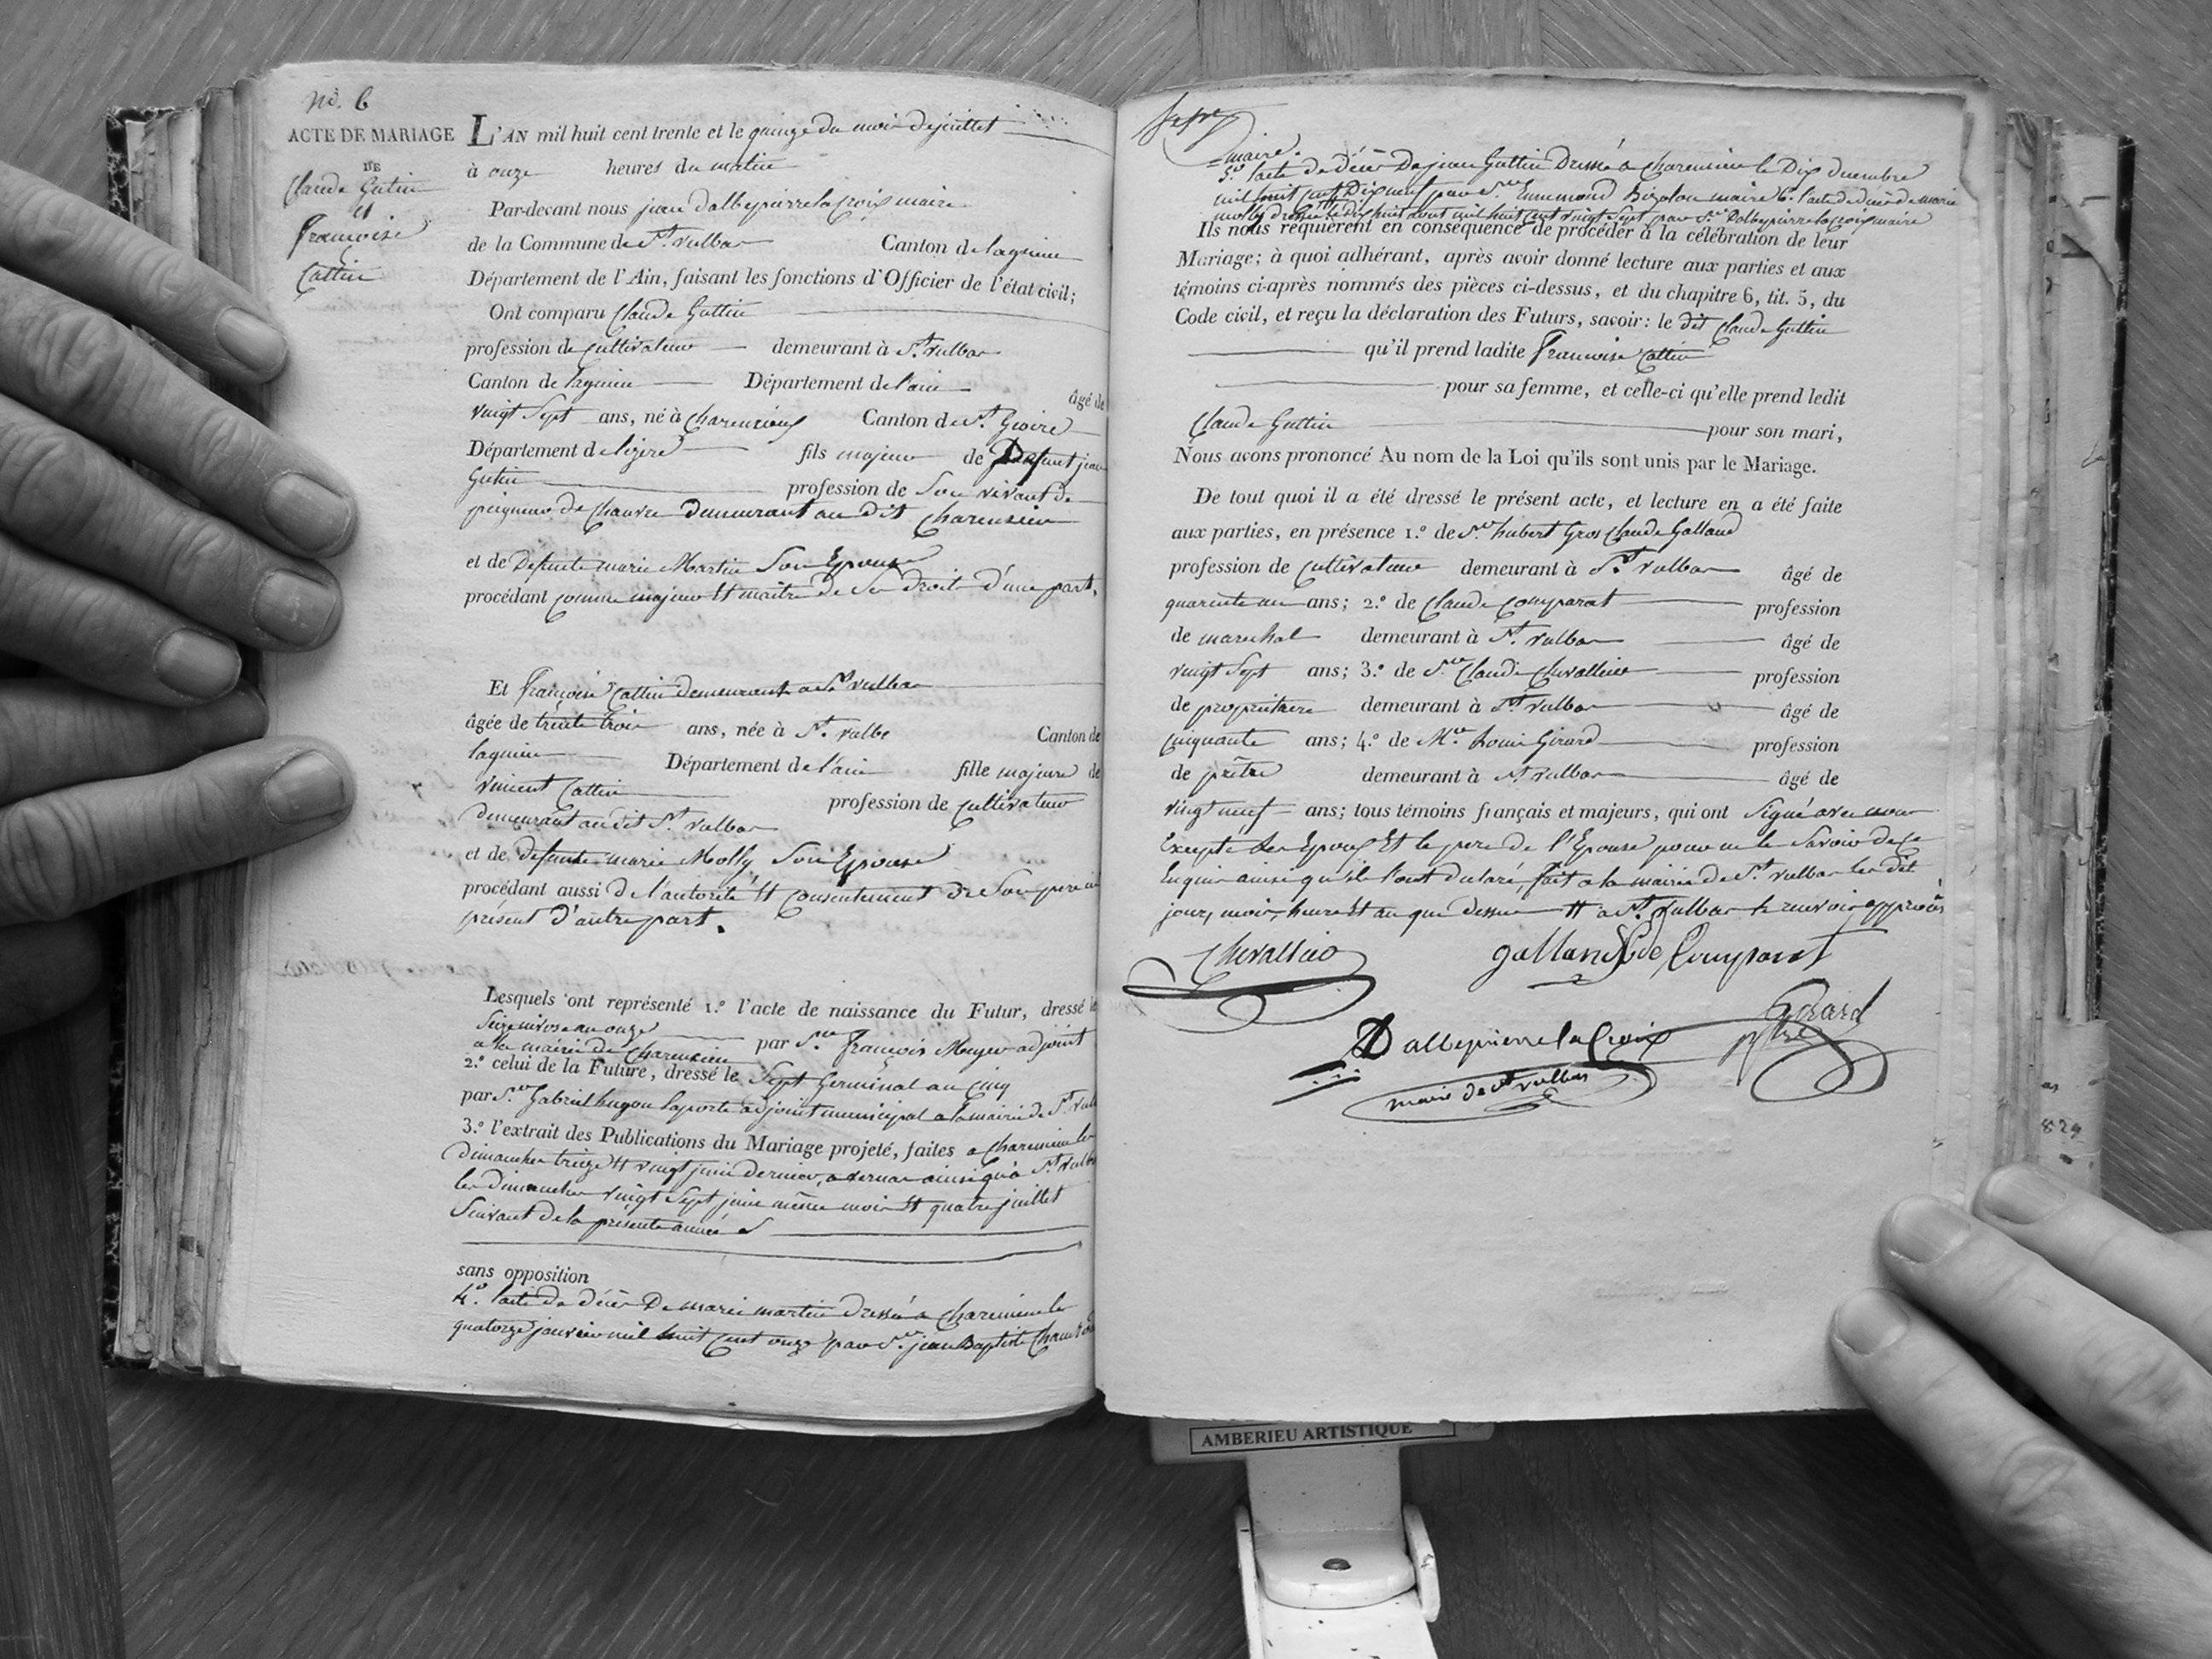 no. 6
ACTE DE MARIAGE
DE
Claude Gutin
et
Francoise
Cattin
L'AN mil huit cent trente et le quinze du mois de juillet
à onze heures du matin
Par-devant nous jean dalbepierre lacroix maire
de la Commune de St. vulbas Canton de lagnieu
Département de l'Ain, faisant les fonctions d'Officier de l'état civil;
Ont comparu Claude Guttin
profession de cultivateur demeurant à St. vulbas
Canton de lagnieu Département de l'ain âgé de
vingt Sept ans, né à Charencieu Canton de St. Geoire
Département de lizere fils majeur de Defunt jean
Gutin profession de Son vivant de
peigneur de Chanvre demeurant au dit Charensieu
et de Defunte marie Martin Son Epouse
procédant comme majeur et maitre de Ses droits d'une part,
Et françoise Cattin demeurant a St vulbas
âgée de trente trois ans, née à St. vulbas Canton de
lagnieu Département de l'ain fille majeure de
vincent Cattin profession de cultivateur
demeurant au dit St. vulbas
et de defunte marie Molly Son Epouse
procédant aussi de l'autorité et consentement de Son pere ici
présent d'autre part.
Lesquels ont représenté 1.º l'acte de naissance du Futur, dressé le
Seize nivose an onze par Sr. françois Meyer adjoint
a la mairie de Charensieu
2.º celui de la Future, dressé le Sept Germinal an Cinq
par Sr. Gabriel hugon laporte adjoint municipal a la mairie de St. vulb
3.º l'extrait des Publications du Mariage projeté, faites a Charensieu les
dimanches treize et vingt juin dernier, a vernas ainsi qu'à St. vulbas
les dimanches vingt Sept juin même mois et quatre juillet
Suivant de la présente année
sans opposition
4.º l'acte de décès De marie martin dressé a Charensieu le
quatorze janvier mil huit Cent onze par Sr. jean Baptiste
maire.
5.º l'acte de décès De jean Guttin Dressé a Charensieu le Dix decembre
mil huit cent Dix neuf par Sr. Emmond Bizolon maire 6.º l'acte de décès de marie
molly dressé le dix huit aout mil huit cent vingt Sept par Sr. Dalbepierre lacroix maire
Ils nous requièrent en conséquence de procéder à la célébration de leur
Mariage; à quoi adhérant, après avoir donné lecture aux parties et aux
témoins ci-après nommés des pièces ci-dessus, et du chapitre 6, tit. 5, du
Code civil, et reçu la déclaration des Futurs, savoir: le dit Claude Guttin
qu'il prend ladite Francoise Cattin
pour sa femme, et celle-ci qu'elle prend ledit
Claude Guttin pour son mari,
Nous avons prononcé Au nom de la Loi qu'ils sont unis par le Mariage.
De tout quoi il a été dressé le présent acte, et lecture en a été faite
aux parties, en présence 1.º de Sr. hubert Gros Claude Galland
profession de cultivateur demeurant à St. vulbas âgé de
quarente un ans; 2.º de Claude Comparat profession
de marechal demeurant à St. vulbas âgé de
vingt Sept ans; 3.º de Sr. Claude Chevallier profession
de propriétaire demeurant à St. vulbas âgé de
cinquante ans; 4.º de Mre. Louis Girard profession
de prêtre demeurant à St. vulbas âgé de
vingt neuf ans; tous témoins français et majeurs, qui ont Signé avec nous
Excepté Les Epoux Et le pere de l'Epouse pour ne le Savoir de ce
Enquis ainsi qu'ils l'ont declaré, fait a la mairie de St. vulbas les dit
jour, mois, heure et an que dessus et a St. vulbas le renvoi approuvé
Chevallier galland Cde Comparat
Girard
ptre
Dalbepierre la Croix
maire de st vulbas
829
AMBERIEU ARTISTIQUE